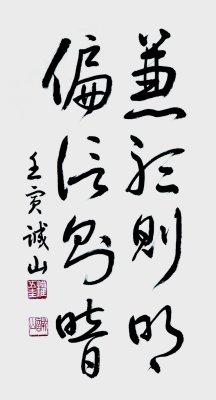 兼听则明
偏信则暗
壬寅 诚山